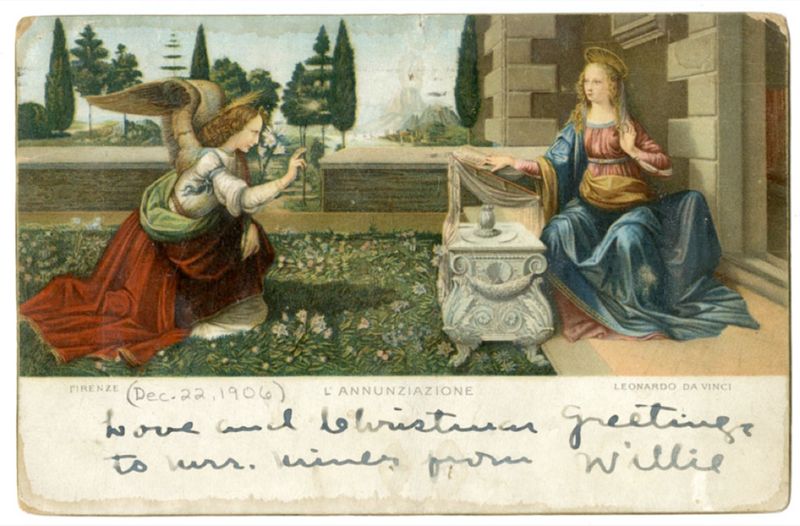 FIRENZE (Dec. 22, 1906) L'ANNUNZIAZIONE LEONARDO DA VINCI
Love and Christmas Greetings
to Mrs. from Willie